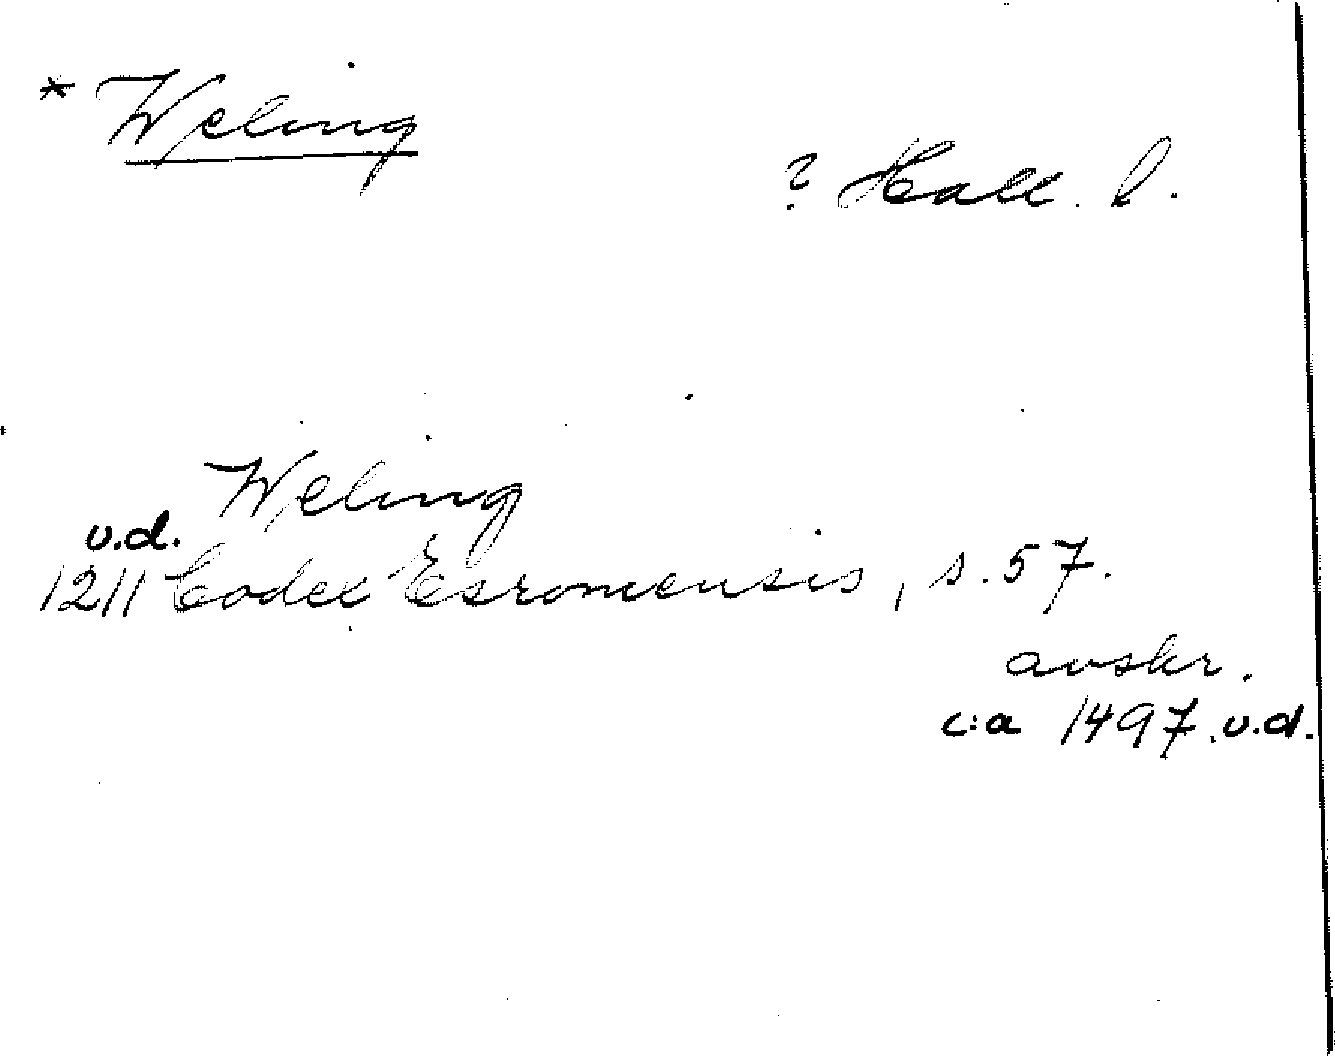 * Weling
? Hall. l.
Weling
u.d.
1211 Codex Esromensis, s. 57.
avskr.
c:a 1497. u.d.